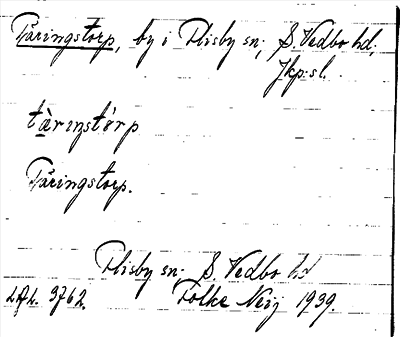 Tåringstorp, by i Flisby sn; S. Vedbo hd;
Jkp:sl.
tàrıŋstórp
Tåringstorp.
Flisby sn; S. Vedbo hd
3762. Folke Neij 1939.